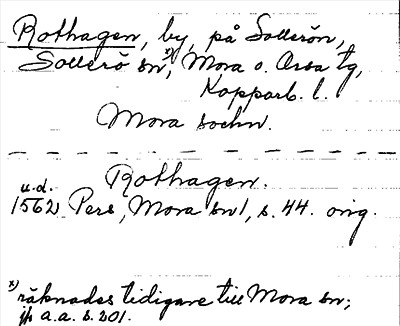 Rothagen, by, på Sollerön,
Sollerö sn,x) Mora o. Orsa tg,
Kopparb. l.
Mora sochn.
Rothagen.
u.d.
1562 Pers, Mora sn1, s. 44. orig.
x) räknades tidigare till Mora sn;
jfr a.a. s. 201.